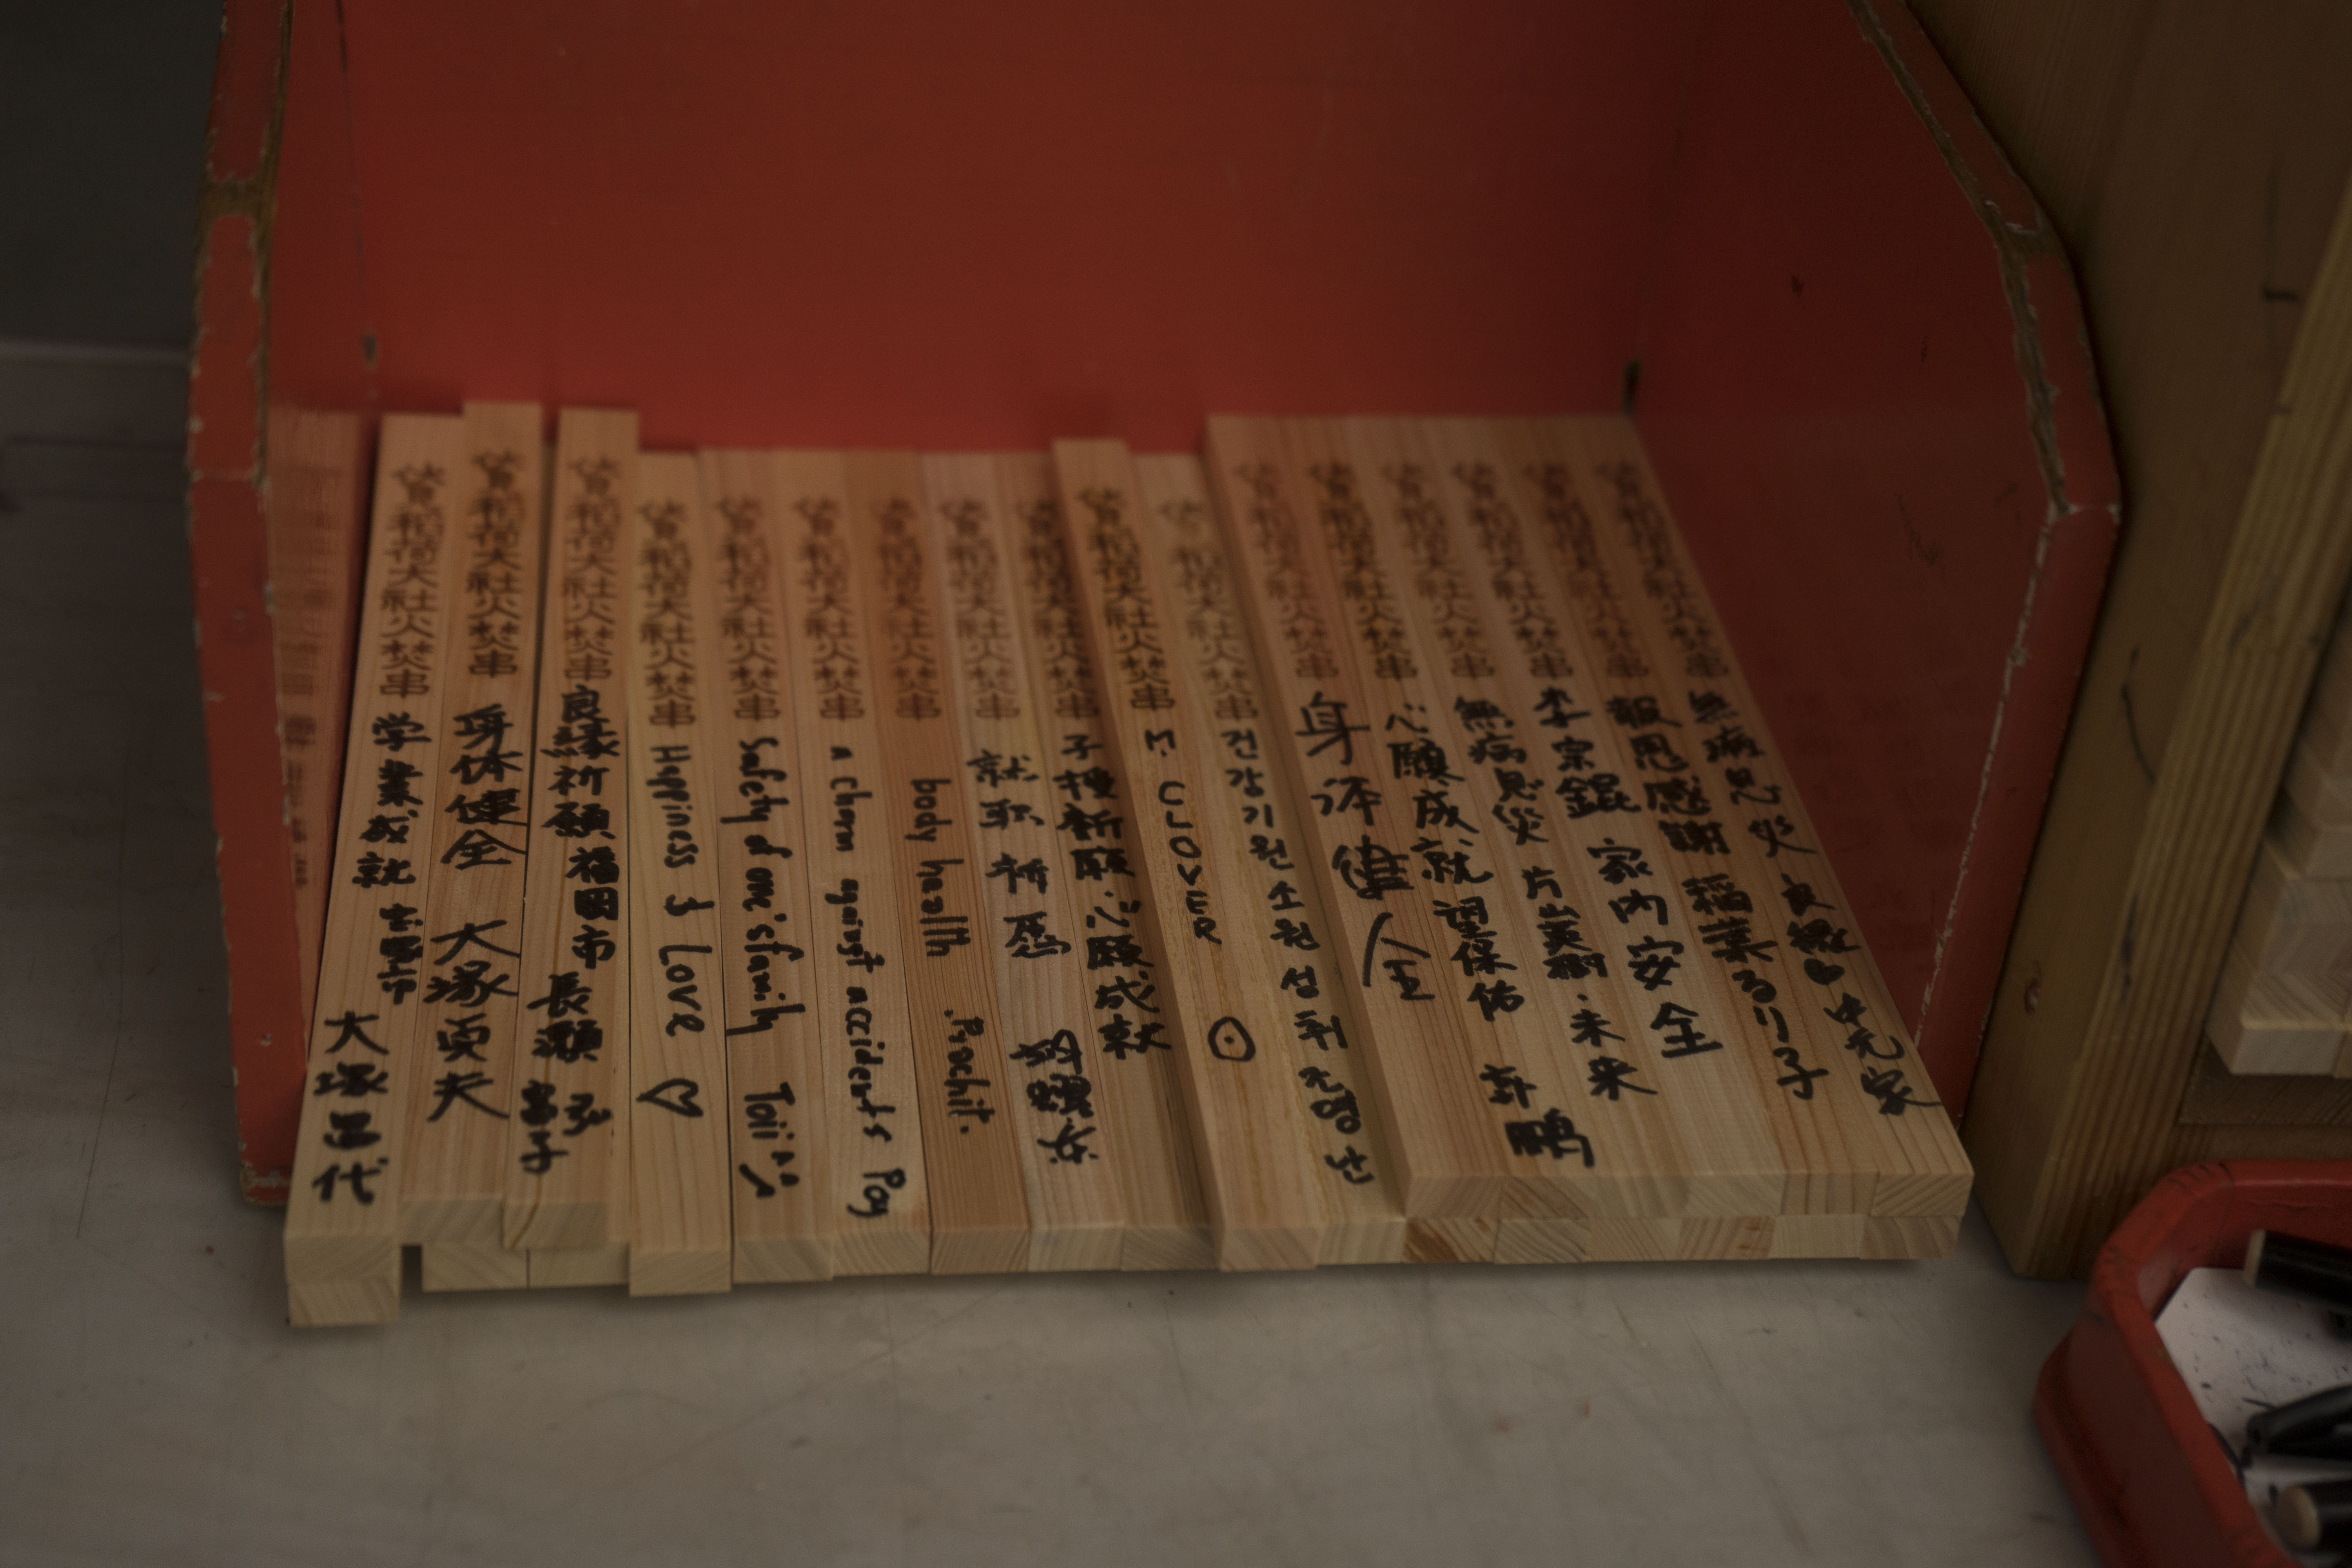 稲荷大社火焚串 学業成就 大塚昌代
稲荷大社火焚串 身体健全 大塚貞夫
稲荷大社火焚串 良縁祈願 福岡市 長瀬
稲荷大社火焚串 Happiness & Love ♡
稲荷大社火焚串 Safety of one's family
稲荷大社火焚串 A charm against accidents Poy
稲荷大社火焚串 body health . Prachit.
稲荷大社火焚串 就职祈愿
稲荷大社火焚串 子授祈願 心願成就
稲荷大社火焚串 M. CLOVER
稲荷大社火焚串 건강기원소원성취
稲荷大社火焚串 身体健全
稲荷大社火焚串 心願成就望保佑 許鵬
稲荷大社火焚串 無病息災 片山美樹・未来
稲荷大社火焚串 李宗錕 家内安全
稲荷大社火焚串 報恩感謝 稲葉るり子
稲荷大社火焚串 無病息災 良縁♥ 中元家